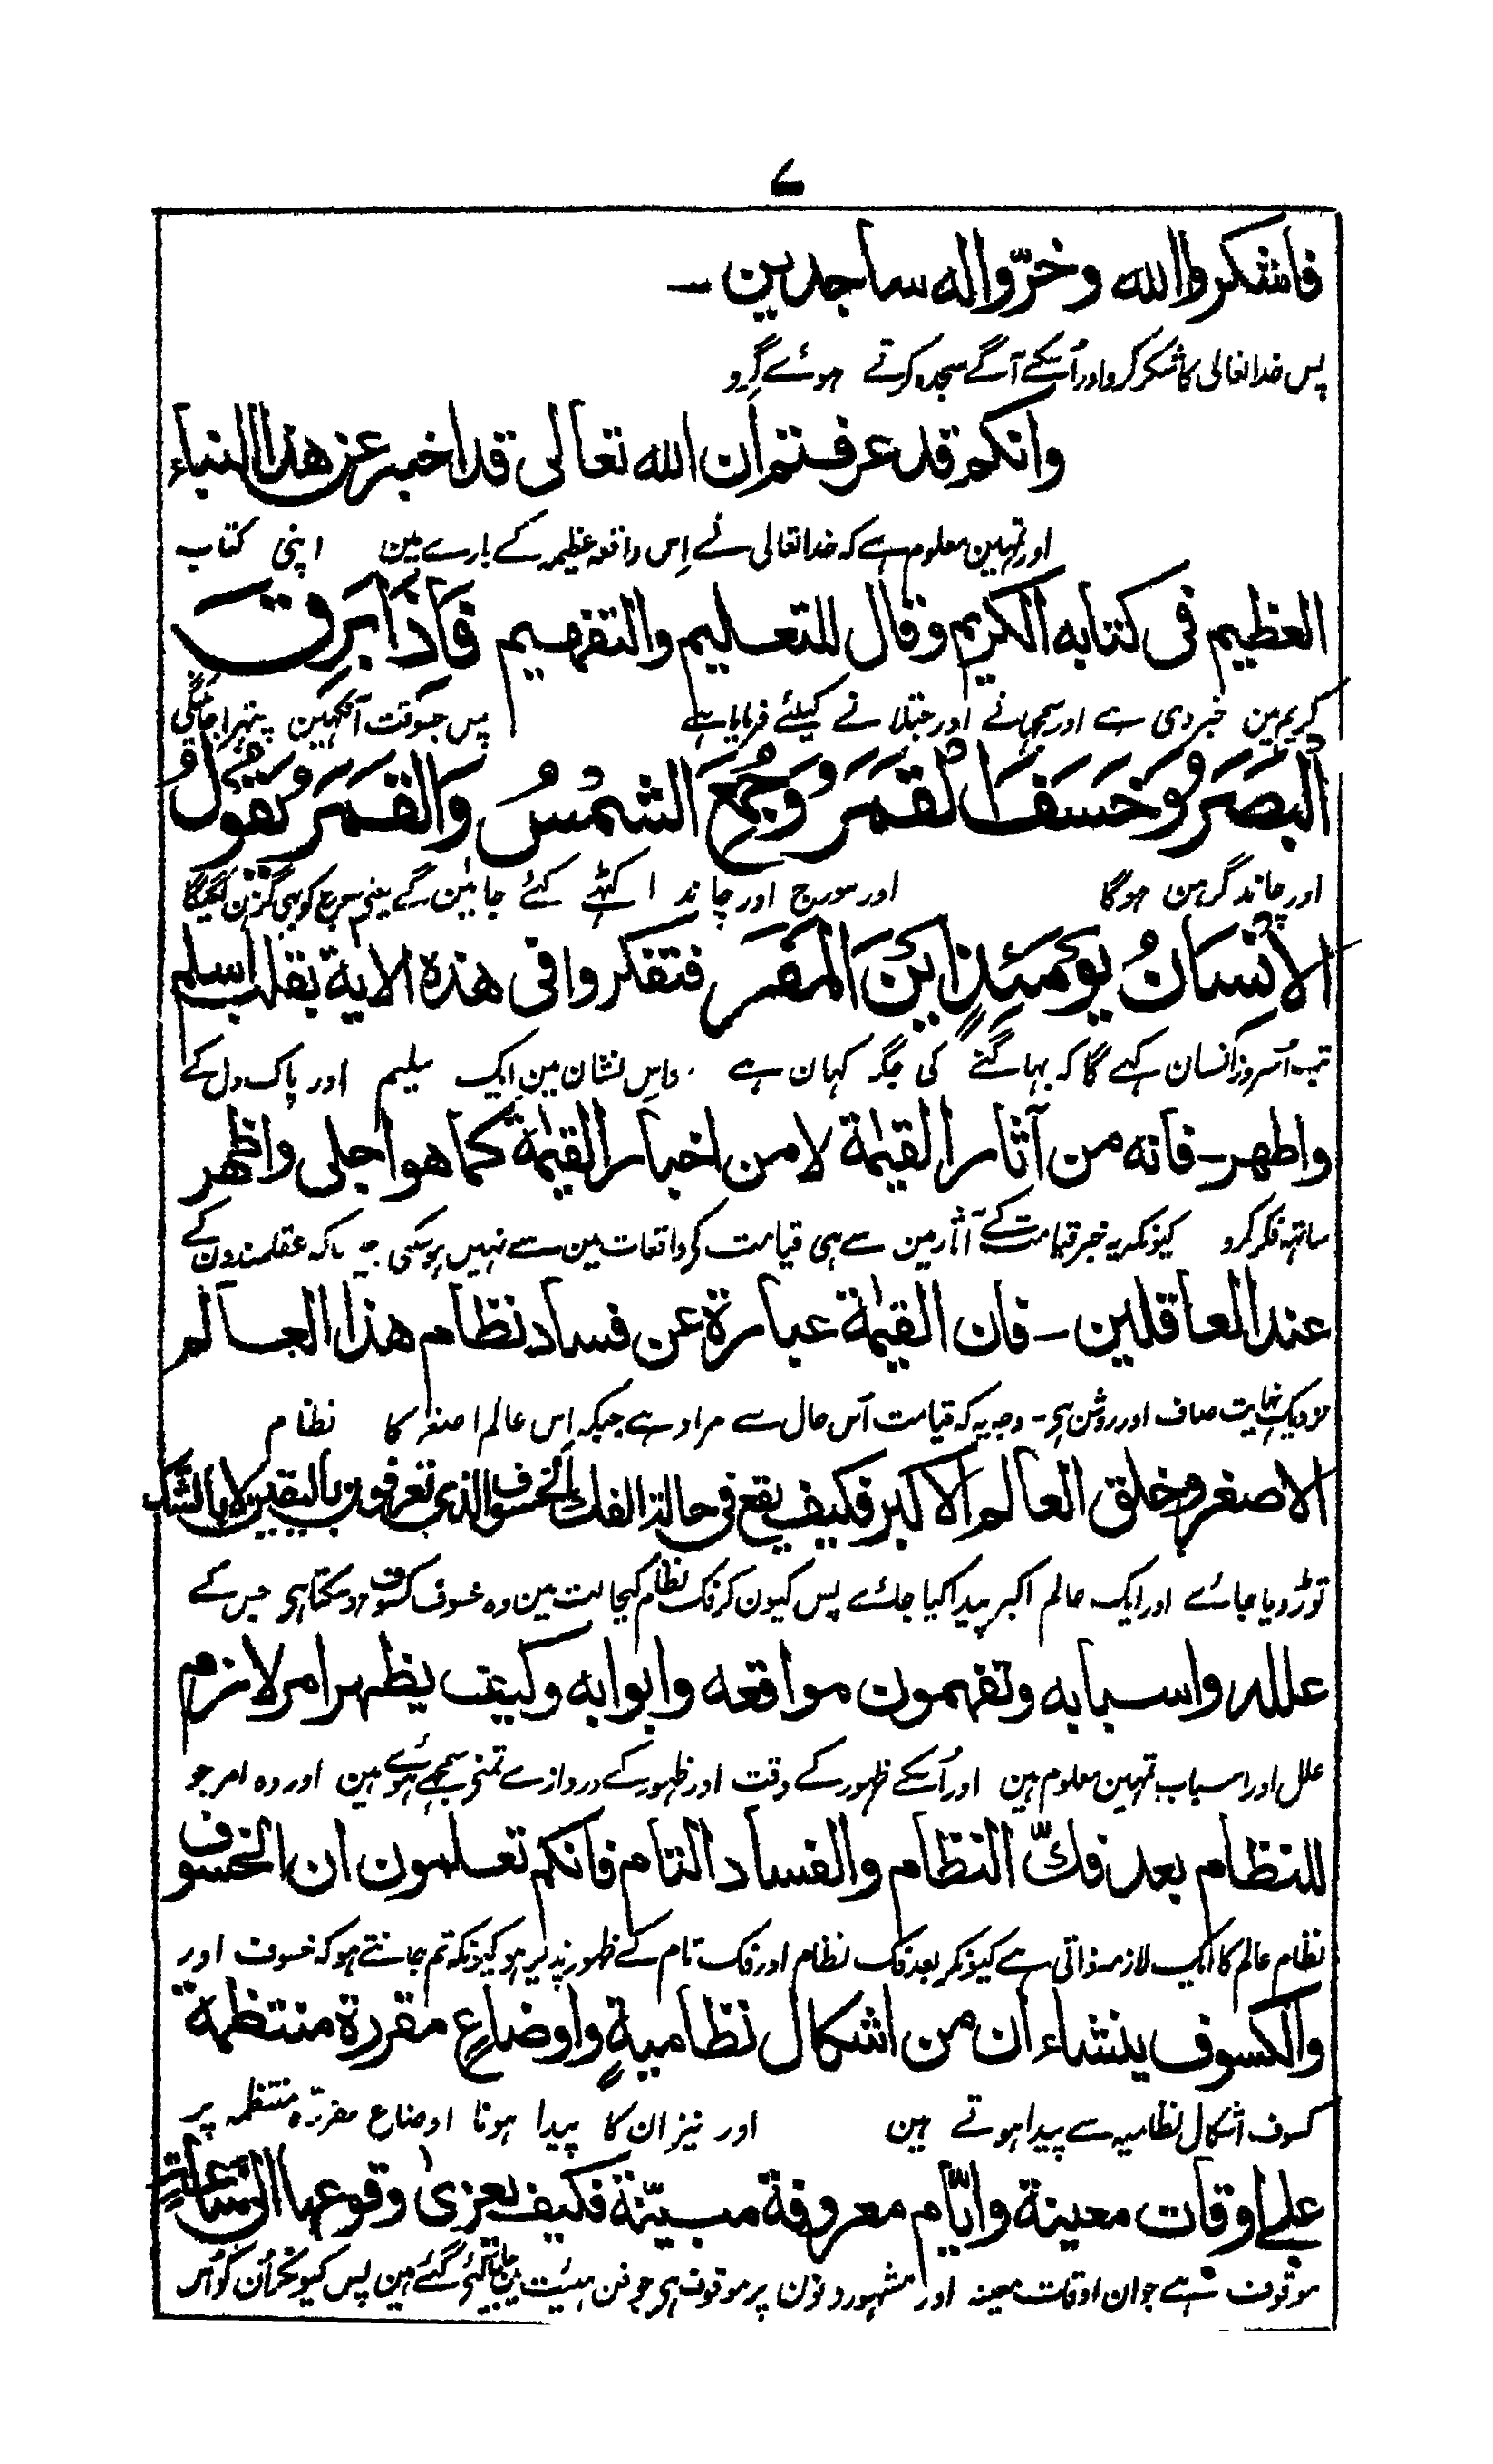 ۷
فاشکروا الله وخرّوا له ساجدین ۔
پس خدا تعالی کا شکر کرو اور اُسکے آگے سجدہ کرتے ہوئے گرو
وانکم قد عرفتم ان الله تعالی قد اخبر عن هذا النباء
اور تمہین معلوم ہے کہ خدا تعالی نے اِس واقعہ عظیمہ کے بارے مین اپنی کتاب
العظیم فی کتابه الکریم وقال للتعلیم والتفهیم فَاِذَا بَرِقَ
کریم مین خبر دی ہے اور سمجہانے اور جتلانے کیلئے فرمایا ہے پس جسوقت آنکہین پتہرا جائینگی
الْبَصَرُ وَخَسَفَ الْقَمَرُ وَجُمِعَ الشَّمْسُ وَالْقَمَرُ يَقُوْلُ
اور چاند گرہن ہوگا اور سورج اور چاند اکٹہے کئے جائین گے یعنی سورج کو بہی گرہن لگیگا
الْاِنْسَانُ يَوْمَئِذٍ اَيْنَ الْمَفَر فتفکروا فی هذه الایة بقلب اسلم
تب اُس روز انسان کہے گا کہ بہاگنے کی جگہ کہان ہے ۔ اس نشان مین ایک سلیم اور پاک دل کے
واطهر ۔ فانه من آثار القیٰمة لا من اخبار القیٰمة کما هو اجلی واظهر
ساتہہ فکر کرو کیونکہ یہ خبر قیامت کے آثار مین سے ہی قیامت کے واقعات مین سے نہین ہوسکتی جیسا کہ عقلمندون کے
عند العاقلین ۔ فان القیٰمة عبارة عن فساد نظام هذا العالم
نزدیک نہایت صاف اور روشن ہی۔ وجہ یہ کہ قیامت اُس حال سے مراد ہے جبکہ اِس عالم اصغر کا نظام
الاصغر وخلق العالم الاکبر فکیف یقع فی حالة الفك الخسوف الذی تعرفون بالیقین لا بالشك
توڑ دیا جائے اور ایک عالم اکبر پیدا کیا جائے پس کیون کر فک نظام کیحالت مین وہ خسوف کسوف ہوسکتا ہی جس کے
علله واسبابه وتفهمون مواقعه وابوابه وکیف یظهر امر لازم
علل اور اسباب تمہین معلوم ہین اور اُسکے ظہور کے وقت اور ظہور کے دروازے تمنے سمجہے ہوئے ہین اور وہ امر جو
للنظام بعد فكّ النظام والفساد التام فانکم تعلمون ان الخسوف
نظام عالم کا ایک لازمہ ذاتی ہے کیونکر بعد فک نظام اور فک تام کے ظہور پذیر ہو کیونکہ تم جانتے ہو کہ خسوف اور
والکسوف ینشاءان من اشکال نظامیةٍ واوضاعٍ مقررة منتظمة
کسوف اشکال نظامیہ سے پیدا ہوتے ہین اور نیز ان کا پیدا ہونا اوضاع مقررہ منتظمہ پر
علی اوقات معینة وایّام معروفة مبیّنة فکیف یعزیٰ وقوعها الی ساعة
موقوف ہے جو ان اوقات معینہ اور مشہور دنون پر موقوف ہی جو فن ہیئت مین بیان کئے گئے ہین پس کیونکر اُن کو اُس